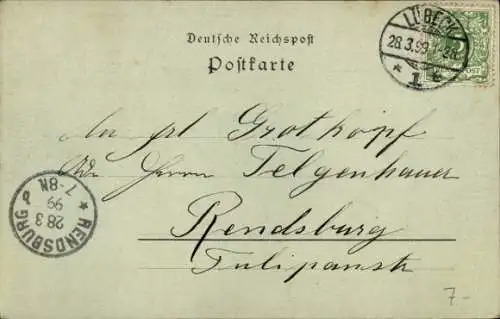 LÜBECK
28.3.99.
* 1 c
Deutsche Reichspost
Postkarte
An Frl. Grotkopf
Adr. Herrn Telgenhauer
Rendsburg
Tulipanstr
RENDSBURG
28 3
99
7-8N
7-